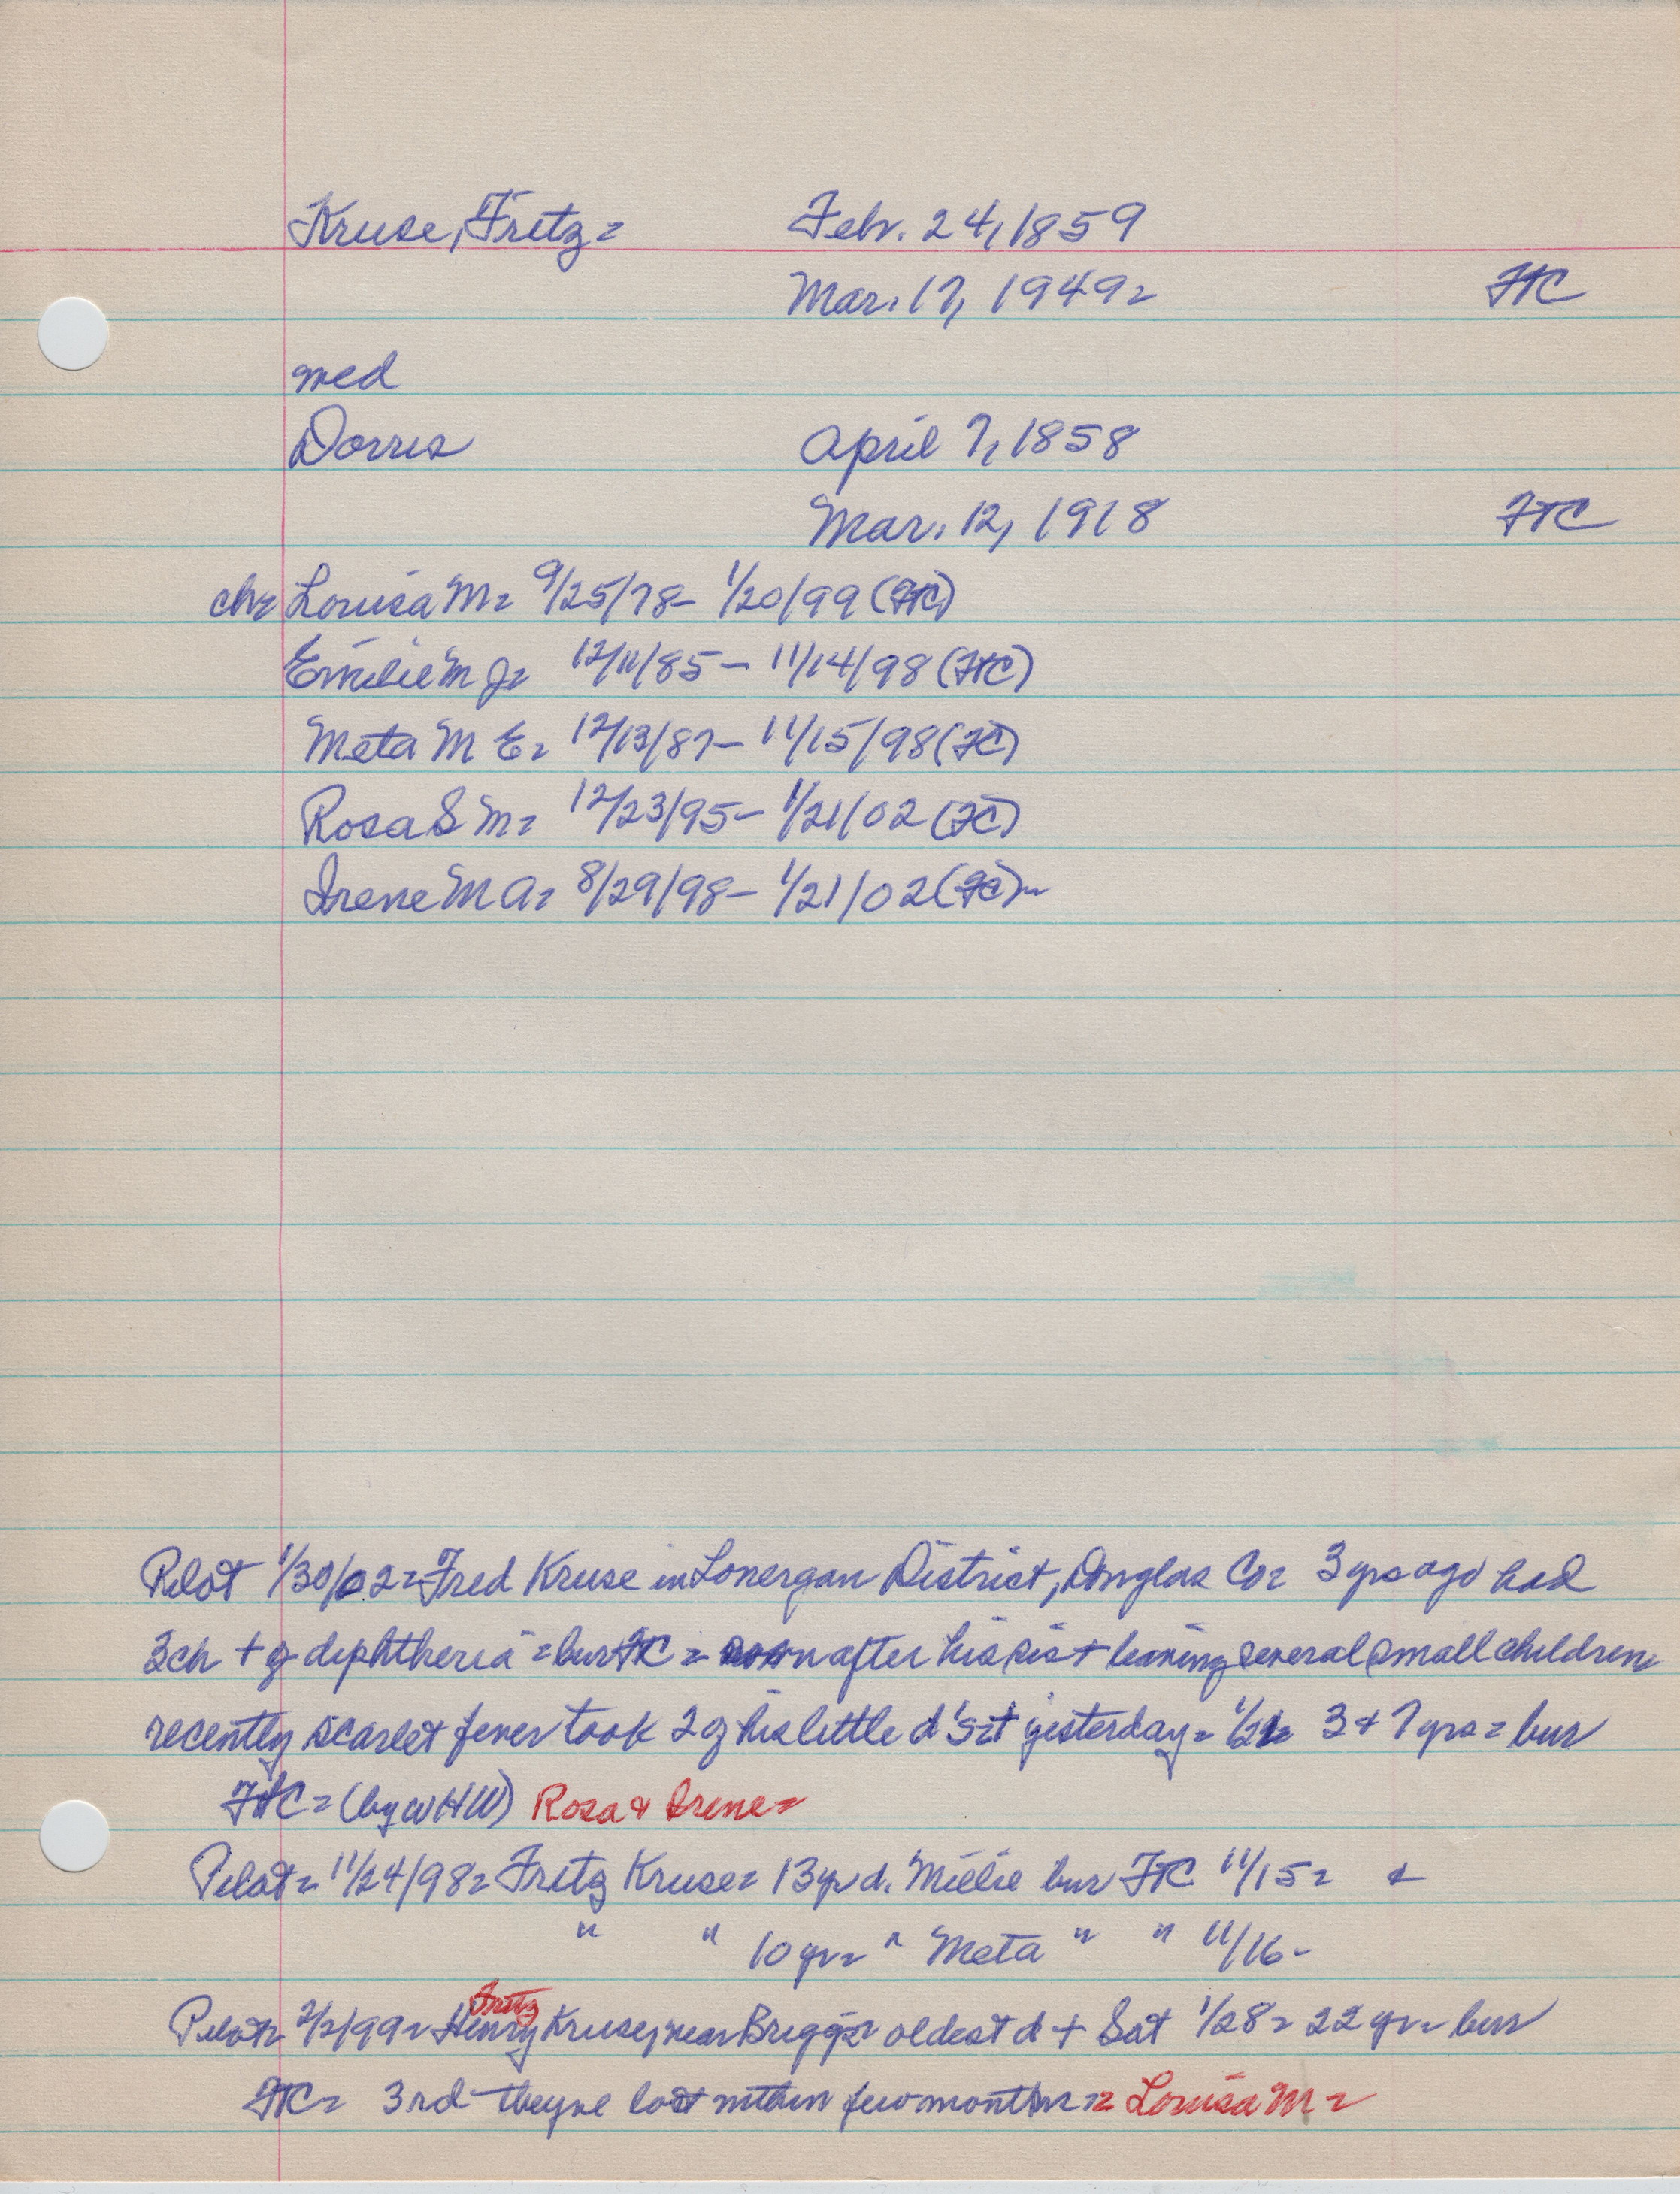 Kruse, Fritz = Febr. 24, 1859
Mar. 17, 1949 = FTC
med
Dorris April 7, 1858
Mar. 12, 1918 FTC
ch = Louisa M = 9/25/78 - 1/20/99 (FTC)
Emilie M J = 12/11/85 - 11/14/98 (FTC)
Meta M E = 12/13/87 - 11/15/98 (FC)
Rosa S M = 12/23/95 - 1/21/02 (FC)
Irene M A = 8/29/98 - 1/21/02 (FC)
Pilot 1/30/02 = Fred Kruse in Lonergan District, Douglas Co = 3 yrs ago had
3 ch + of diphtheria = bur FTC = soon after his sis + leaving several small children
recently scarlet fever took 2 of his little d's = + yesterday = 1/21 = 3 & 7 yrs = bur
FTC = (by WHW) Rosa & Irene =
Pilot = 11/24/98 = Fritz Kruse = 13 yr d. Millie bur FTC 11/15 = &
" " 10 yr = " Meta " " 11/16 -
Fritz
Pilot = 2/2/99 = Henry Kruse, near Briggs = oldest d + Sat 1/28 = 22 yr = bur
FTC = 3rd theyve lost within few months = Louisa M =